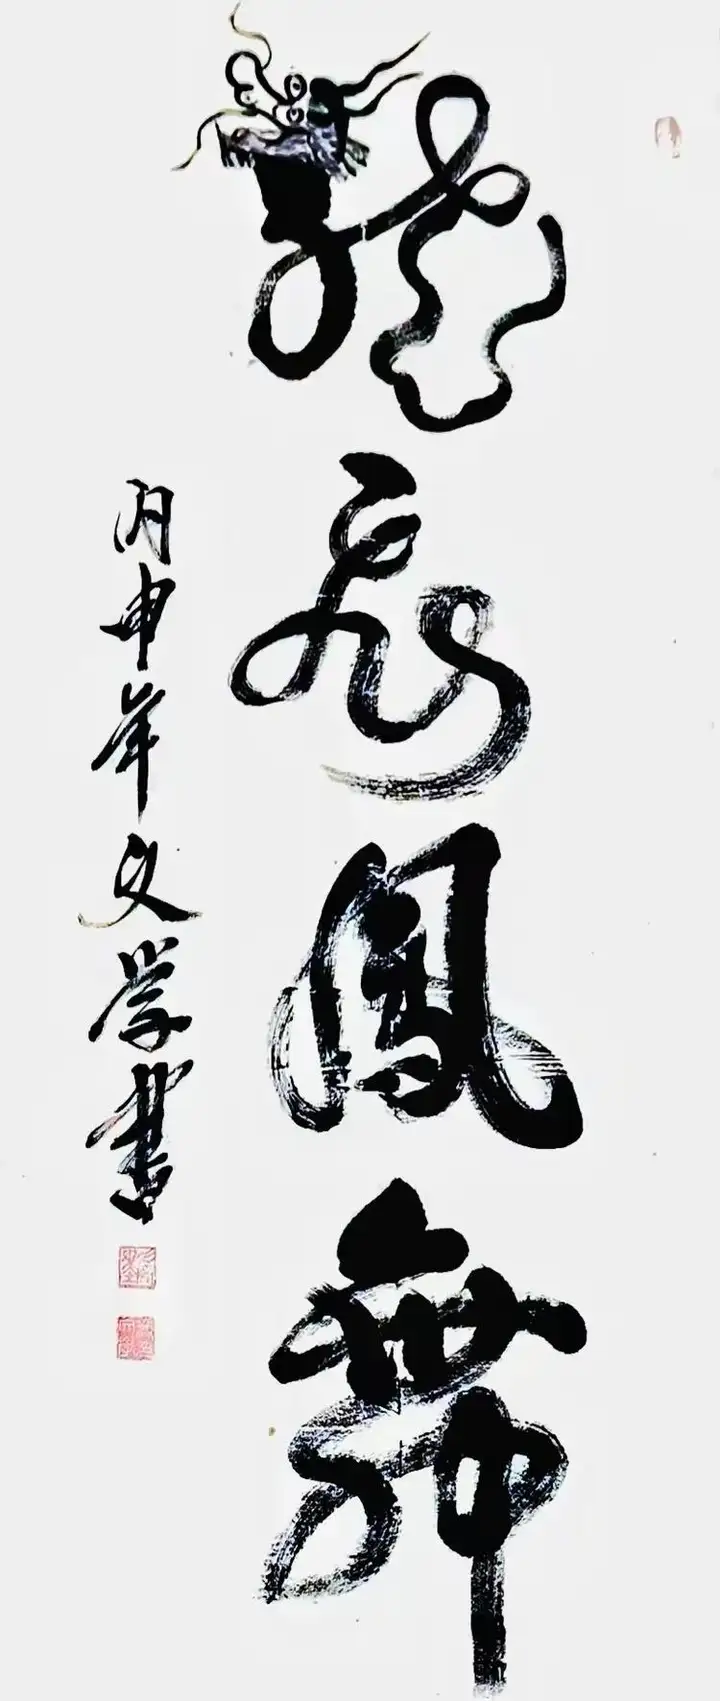 龍飛鳳舞
丙申年文学書